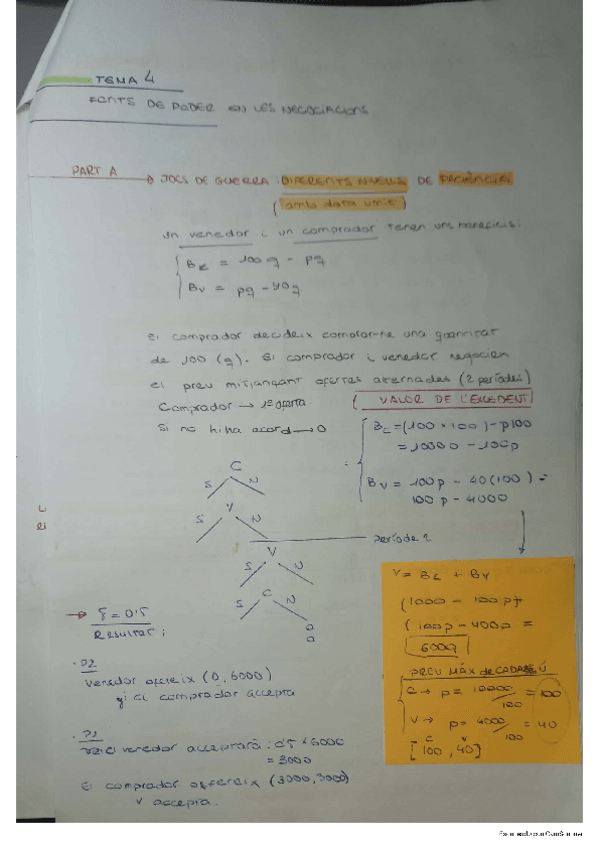 TEMA 4
FONTS DE PODER EN LES NEGOCIACIONS
PART A → JOCS DE GUERRA : DIFERENTS NIVELLS DE PACIÈNCIA
(amb data límit)
Un venedor i un comprador tenen uns beneficis:
Bc = 100q - pq
Bv = pq - 40q
El comprador decideix comprar-ne una quantitat
de 100 (q). El comprador i venedor negocien
el preu mitjançant ofertes alternades (2 períodes)
Comprador → 1ª oferta
Si no hi ha acord → 0
(VALOR DE L'EXCEDENT)
Bc = (100 · 100) - p100
= 10000 - 100p
Bv = 100p - 40(100) =
100p - 4000
C
S N
V
S N
Període 2
V
S N
C
S N
0
0
→ δ = 0'5
Resultat:
· P2
Venedor ofereix (0, 6000)
i el comprador accepta
· P1
el venedor acceptarà: 0'5 · 6000
= 3000
El comprador offereix (3000, 3000)
V accepta.
V = Bc + Bv
(1000 - 100p) +
(100p - 400p =
6000
PREU MÀX de CADASCÚ
C → p = 10000/100 = 100
V → p = 4000/100 = 40
C V
[100, 40]